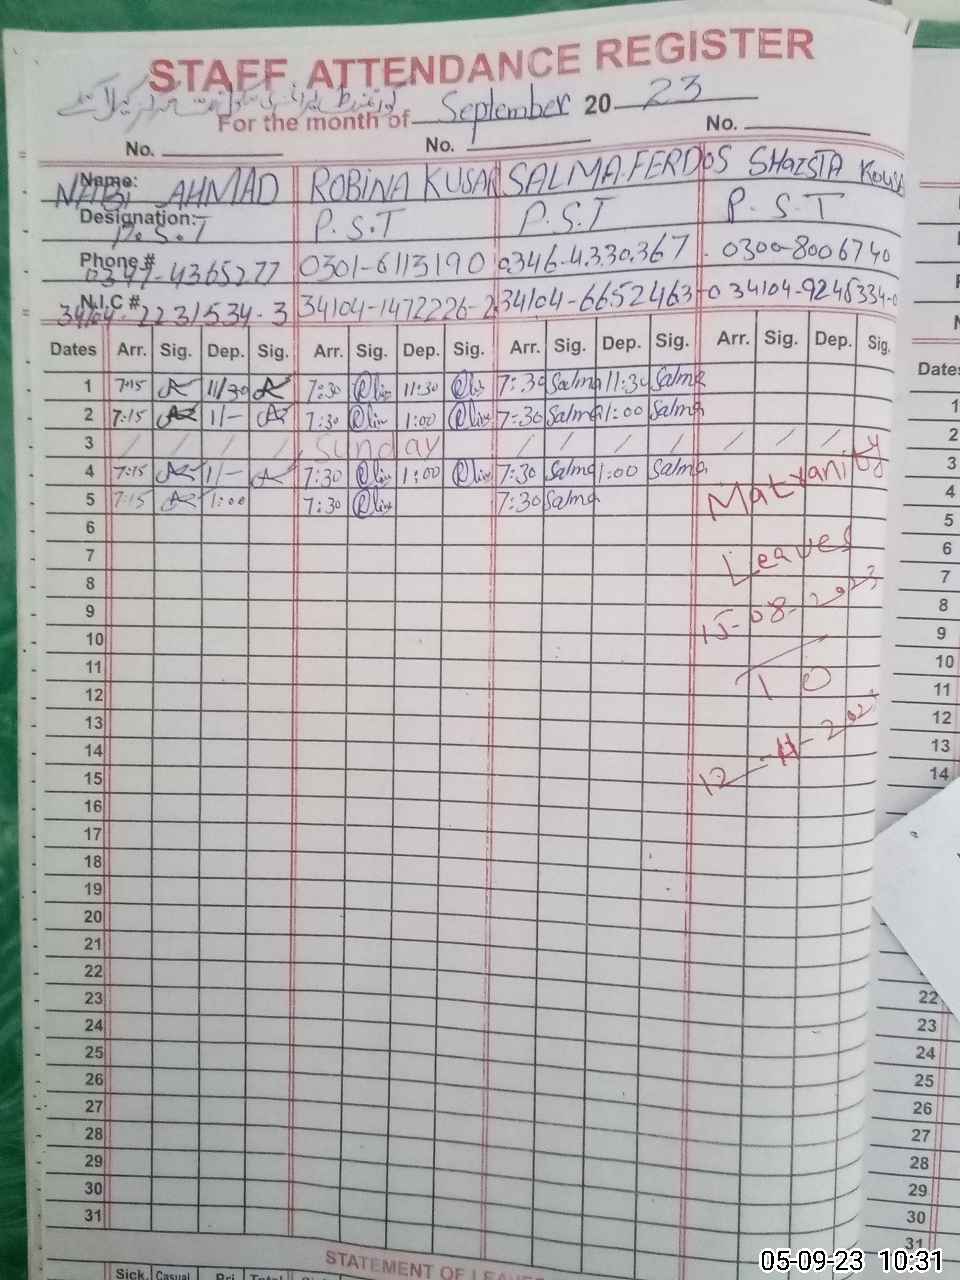 STAFF ATTENDANCE REGISTER
For the month of September 20 23
No. No. No.
Name: NABI AHMAD ROBINA KUSAR SALMA FERDOS SHAZSTA KOUS
Designation: P.S.T P.S.T P.S.T P.S.T
Phone # 0347-4365277 0301-6113190 0346-4330367 0300-8006740
N.I.C # 34104-2231534-3 34104-1472226-2 34104-6652463-0 34104-9246334-0
Dates Arr. Sig. Dep. Sig. Arr. Sig. Dep. Sig. Arr. Sig. Dep. Sig. Arr. Sig. Dep. Sig.
1 7:15 11/30 7:30 11:30 7:30 Salma 11:30 Salma
2 7:15 11- 7:30 1:00 7:30 Salma 1:00 Salma
3 / / / / Sunday / / / / / / / /
4 7:15 11- 7:30 1:00 7:30 Salma 1:00 Salma
5 7:15 1:00 7:30 7:30 Salma
Matranity
Leaves
15-08-2023
TO
12-11-202
6
7
8
9
10
11
12
13
14
15
16
17
18
19
20
21
22
23
24
25
26
27
28
29
30
31
STATEMENT OF LEAVE
Sick. Casual Pri. Total
Dates
1
2
3
4
5
6
7
8
9
10
11
12
13
14
22
23
24
25
26
27
28
29
30
31
05-09-23 10:31